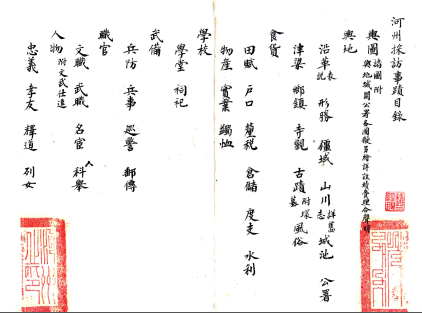 河州採訪事蹟目錄
輿圖 諸圖附
輿地
沿革 表説 形勝 疆域 山川 詳舊志 城池 公署
津梁 鄉鎮 寺觀 古蹟 附塚墓 風俗
食貨
田賦 戶口 釐税 倉儲 度支 水利
物產 實業 蠲恤
學校
學堂 祠祀
武備
兵防 兵事 巡警 郵傳
職官
文職 武職 名宦
人物 附文武仕進 科舉
忠義 孝友 釋道 列女